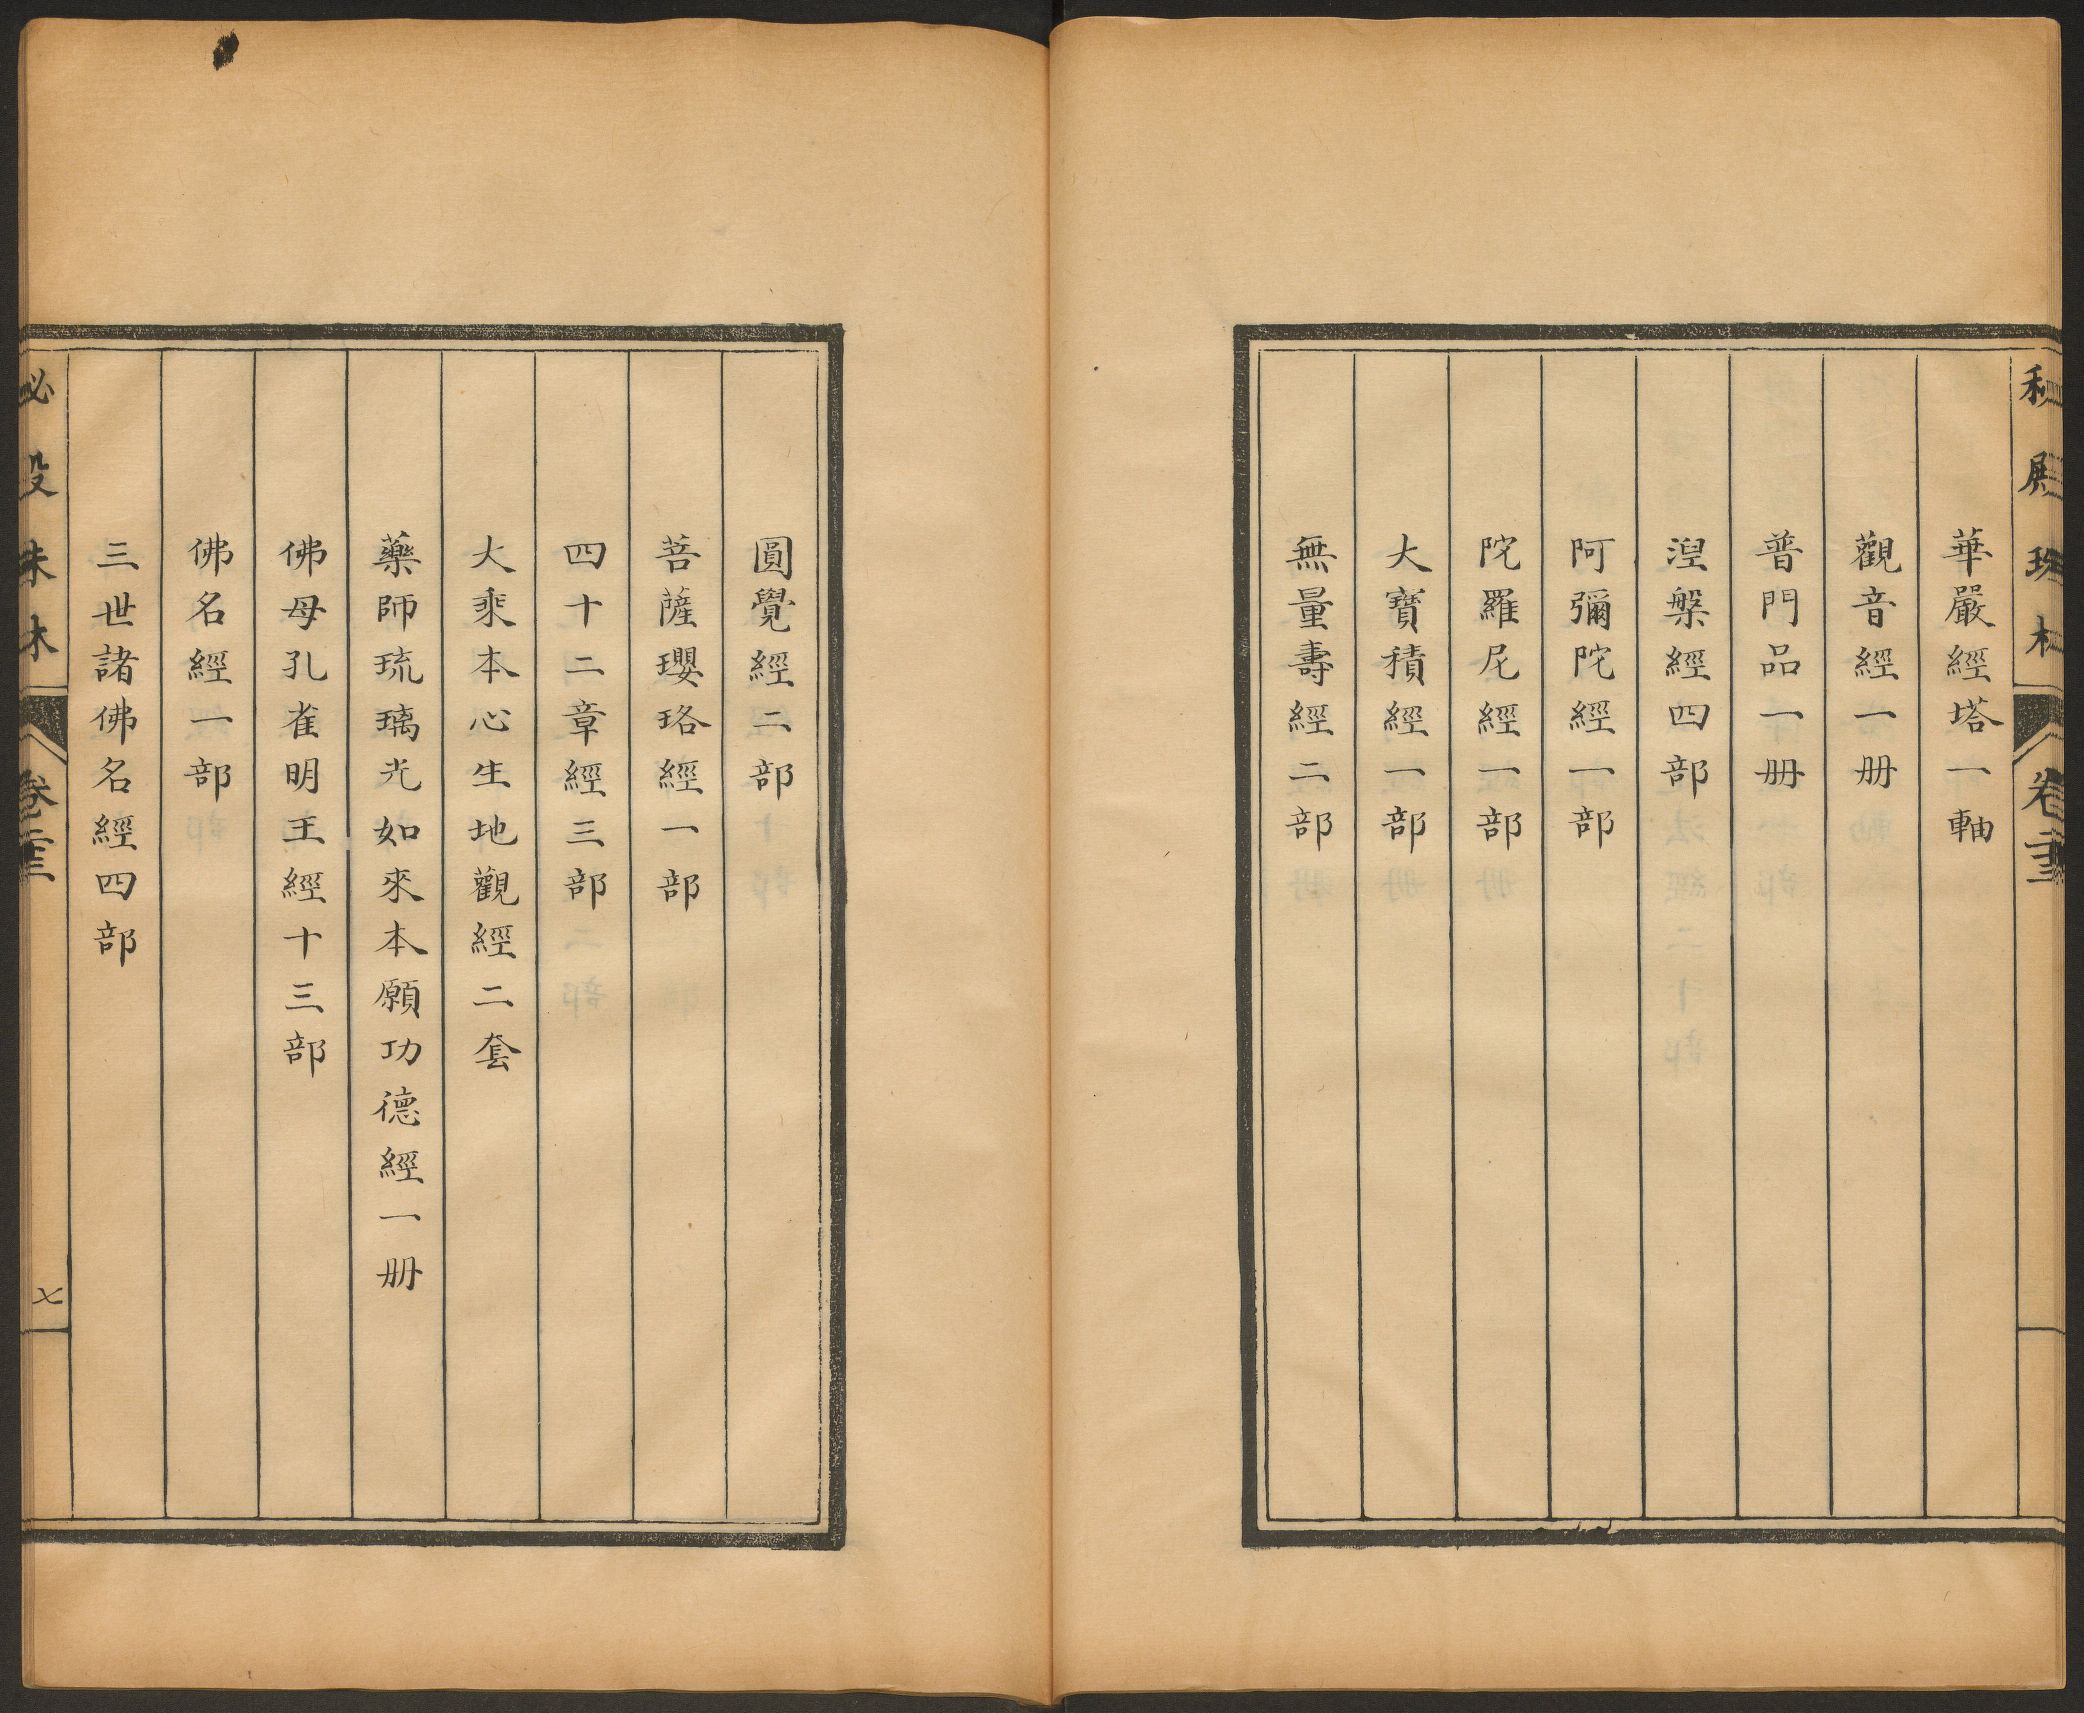 華嚴經塔一軸
觀音經一册
普門品一册
湼槃經四部
阿彌陀經一部
陀羅尼經一部
大寶積經一部
無量壽經二部
圓覺經二部
菩薩瓔珞經一部
四十二章經三部
大乘本心生地觀經二套
藥師琉璃光如來本願功德經一册
佛母孔雀明王經十三部
佛名經一部
三世諸佛名經四部
七